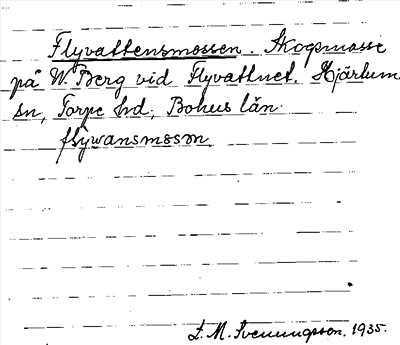 Flyvattensmossen. Skogsmosse
på W. Berg vid Flyvattnet. Hjärtum
sn, Torpe hd, Bohus län.
flywansmosn
F. M. Svenungsson. 1935.